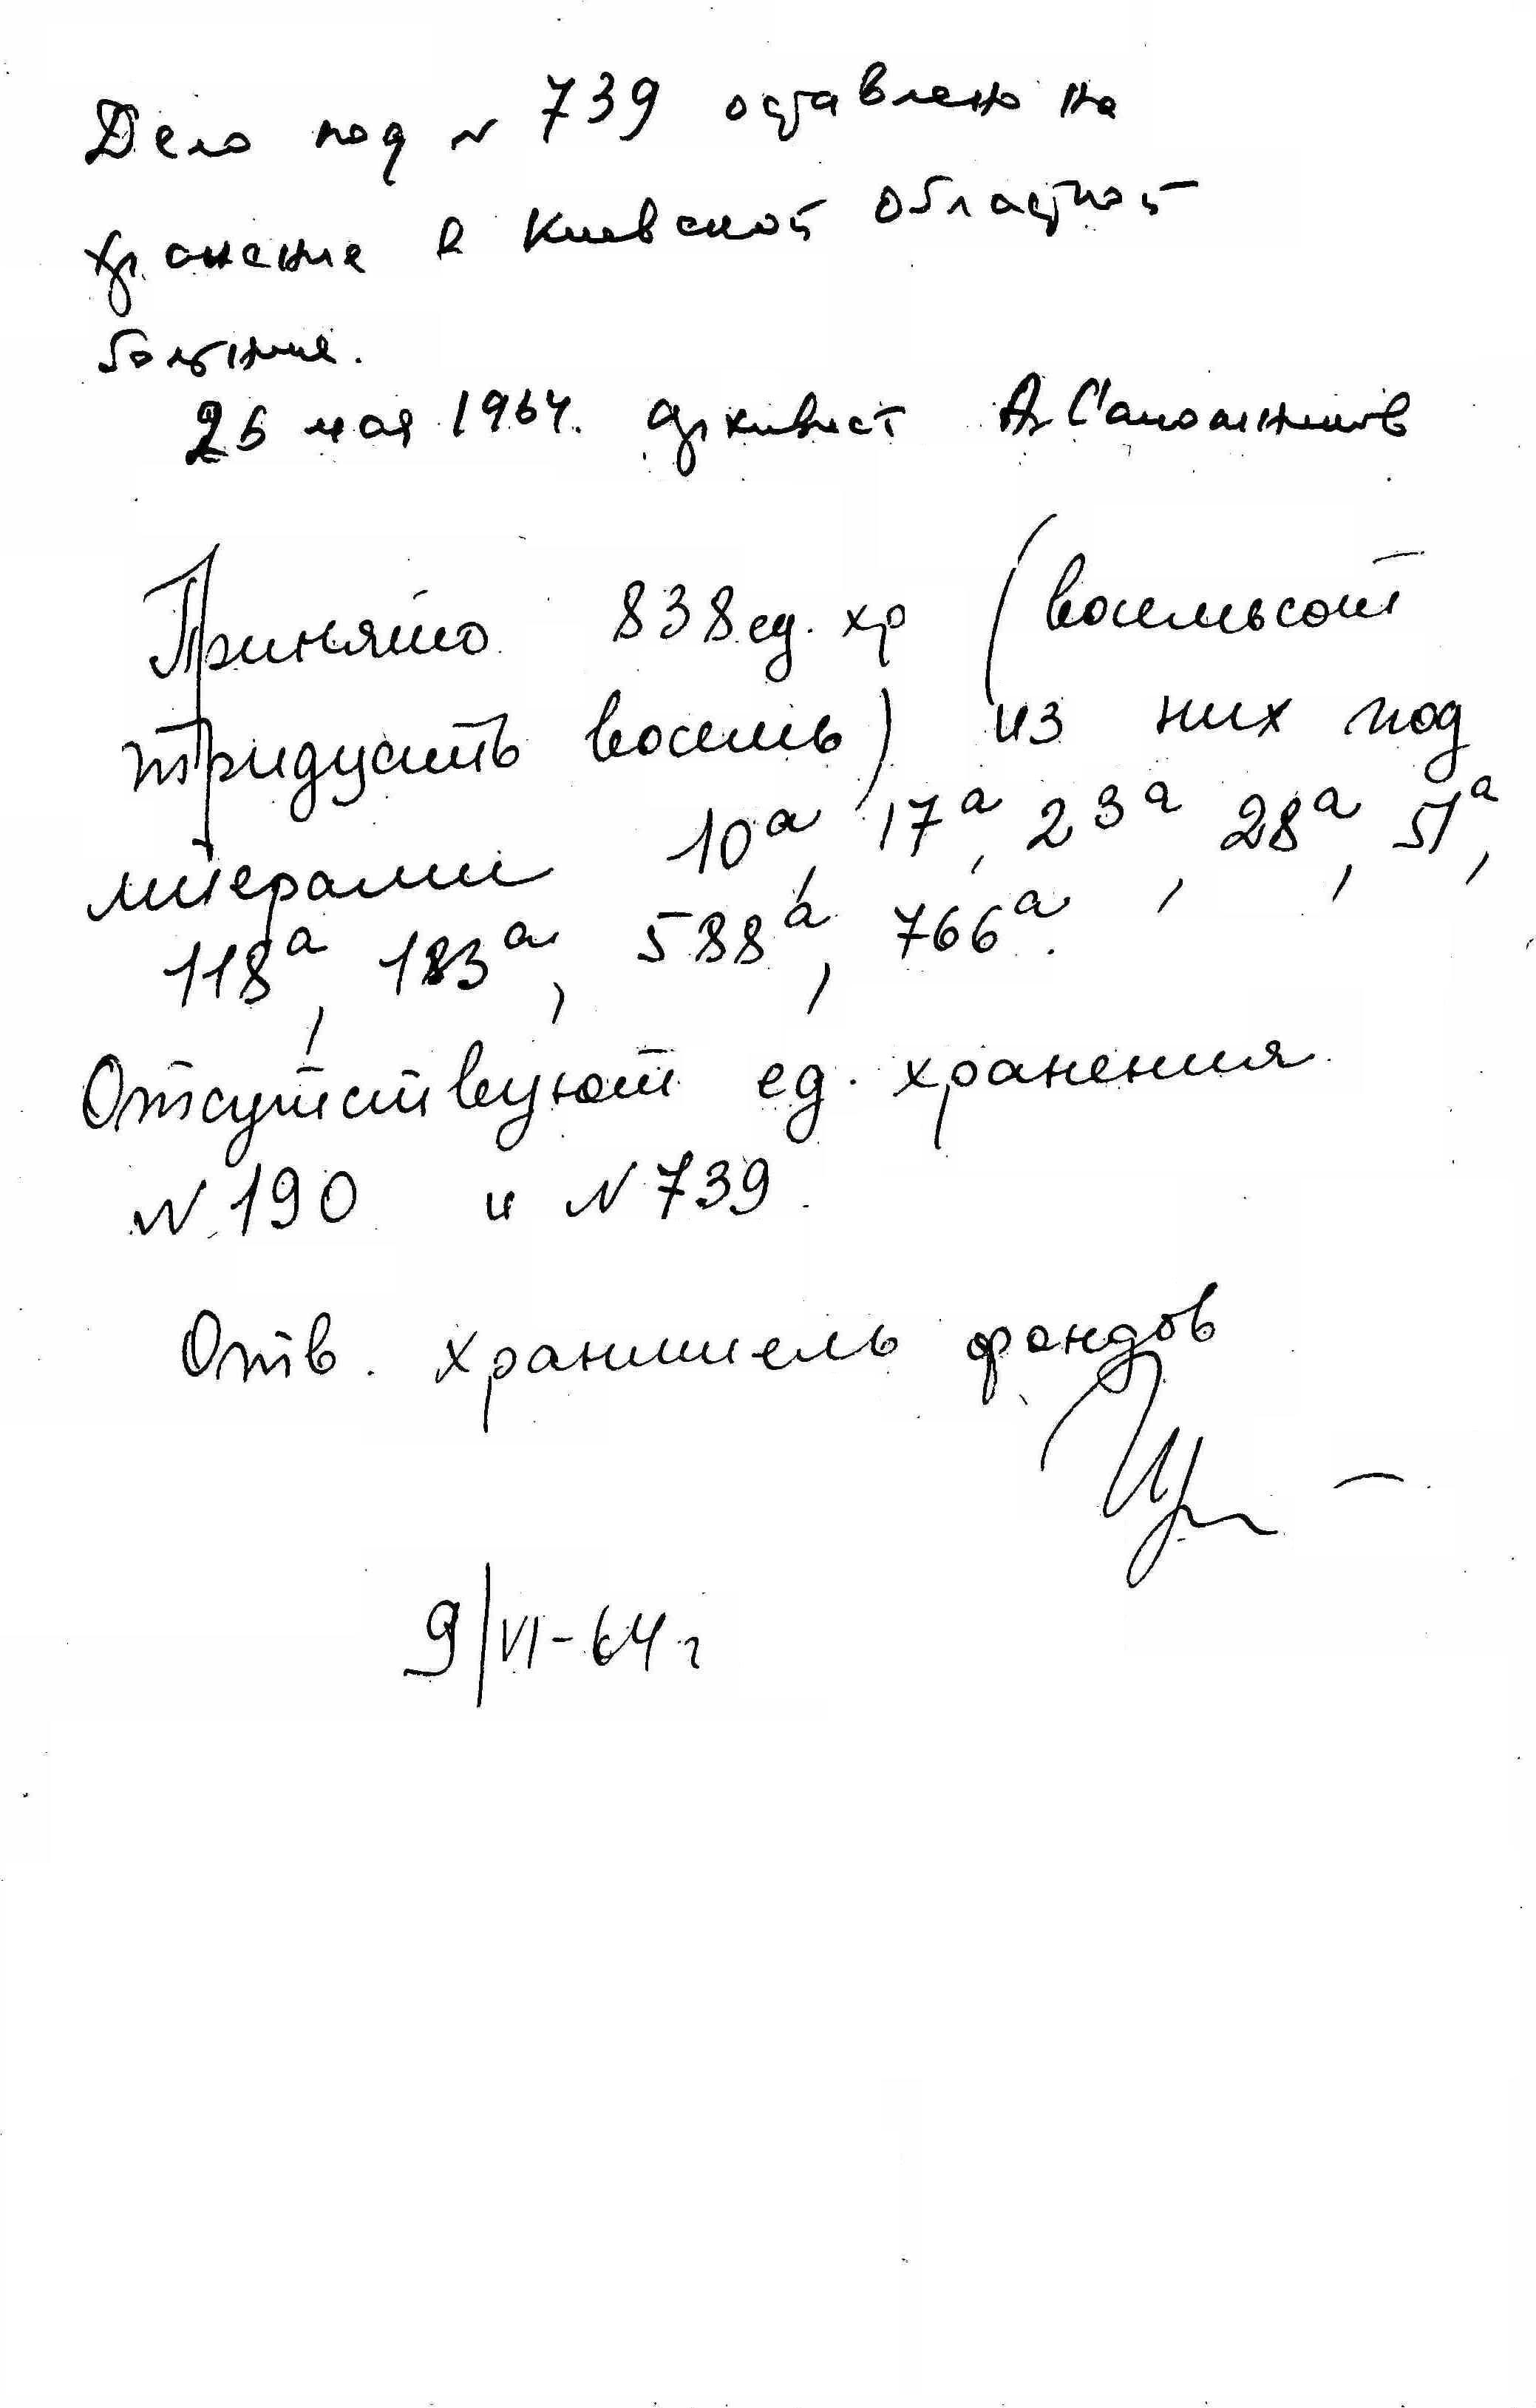 Дело под N 739 оставлено на
хранение в Киевской областной
больнице.
26 мая 1964. Архивист А. Сапожников
Принято 838 ед. хр (восемьсот
тридцать восемь) из них под
литерами 10а, 17а, 23а, 28а, 51а,
118а, 183а, 588а, 766а.
Отсутствуют ед. хранения
N 190 и N 739.
Отв. хранитель фондов
9/VI-64 г